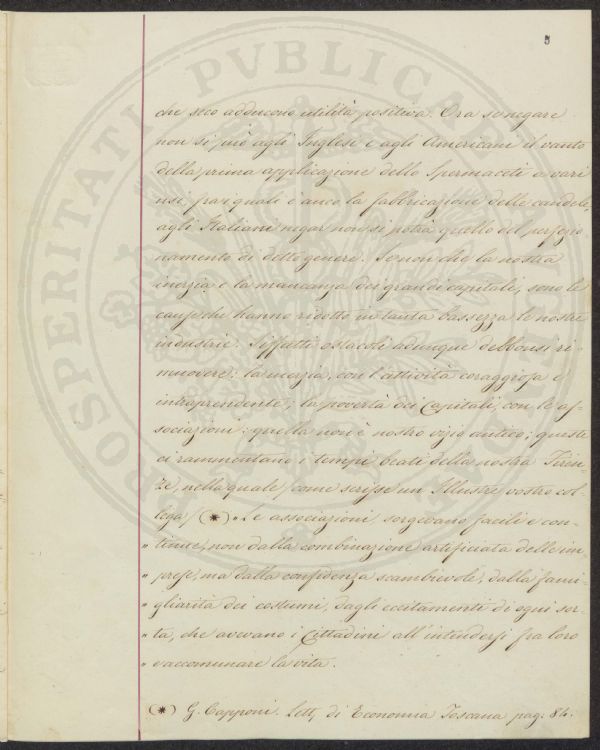 3
che seco adducono utilità positiva. Ora se negare
non si può agli Inglesi e agli Americani il vanto
della prima applicazione dello Spermaceti a vari
usi, pei quali è anco la fabbricazione delle candele,
agli Italiani negar non si potrà quello del perfezio
namento di detto genere. Senonchè la nostra
inerzia e la mancanza dei grandi capitali, sono le
cause che hanno ridotto in tanta bassezza le nostre
industrie. Siffatti ostacoli adunque debbonsi ri-
muovere: la inerzia, con l'attività coraggiosa e
intraprendente; la povertà dei Capitali, con le as-
sociazioni: quella non è nostro vizio antico; queste
ci rammentano i tempi beati della nostra Firen-
ze, nella quale / come scrisse un Illustre vostro col-
lega / (*) "Le associazioni sorgevano facili e con-
" tinue, non dalla combinazione artificiata delle im
" prese, ma dalla confidenza scambievole, dalla fami-
" gliarità dei costumi, dagli eccitamenti di ogni sor-
" ta, che avevano i Cittadini all'intendersi fra loro
" e accomunare la vita.
(*) G. Capponi. Lett. di Economia Toscana pag: 84.
PROSPERITATI PVBLICAE